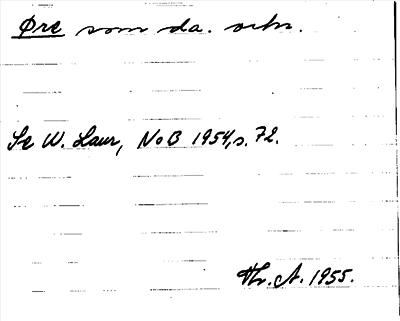 Øre som da. ortn.
Se W. Laur, NoB 1954, s. 72.
Th. A. 1955.